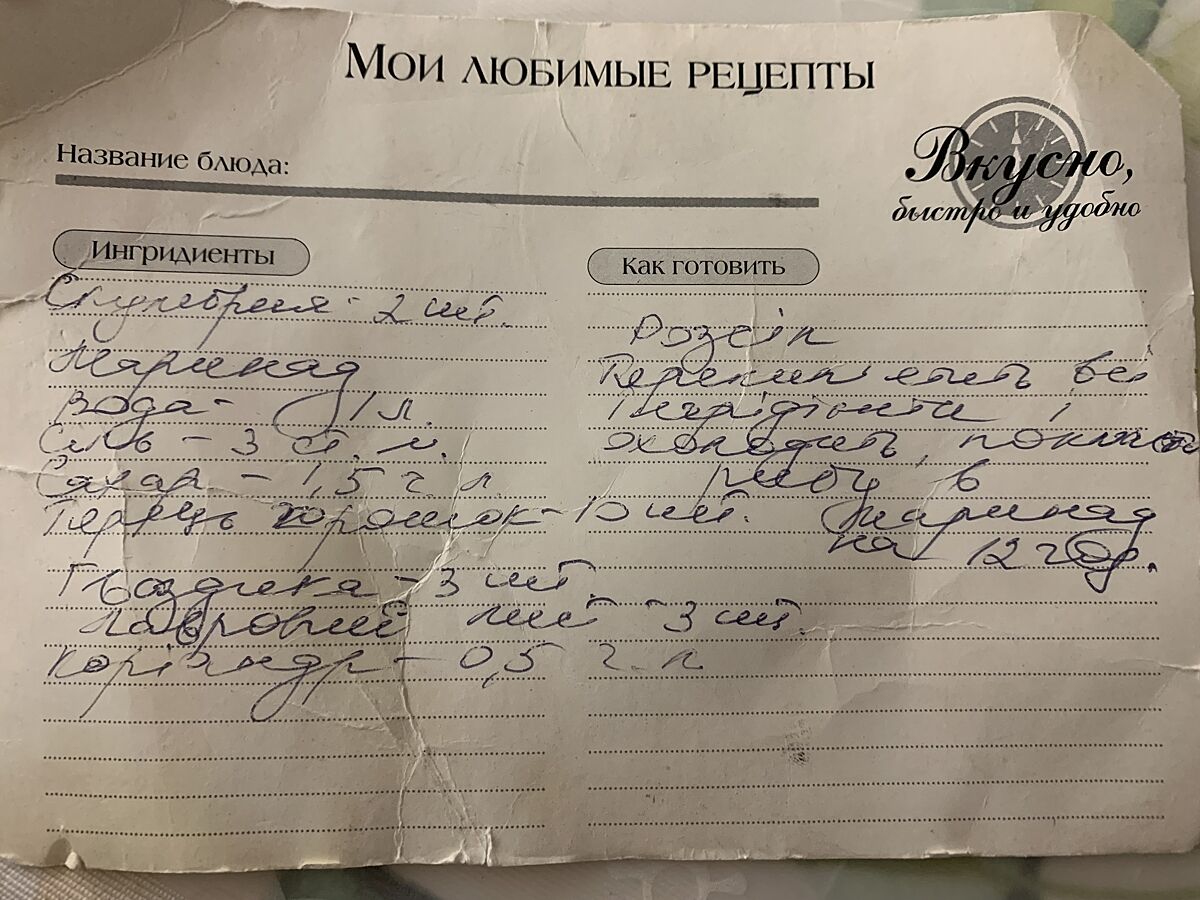 Мои любимые рецепты
Название блюда:
Вкусно,
быстро и удобно
Ингридиенты
Скумбрия - 2 шт.
Маринад
Вода - 1 л.
Сіль - 3 ст. л.
Сахар - 1,5 г. л.
Перець горошок - 10 шт.
Гвоздика - 3 шт.
Лавровий лист - 3 шт.
Коріандр - 0,5 г. л
Как готовить
Розсіл
Перекип'ятить всі
інгрідієнти і
охолодить, покласть
рибу в
маринад
на 12 год.